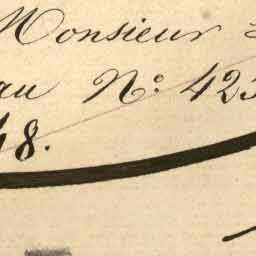 Monsieur
au No: 425
48.